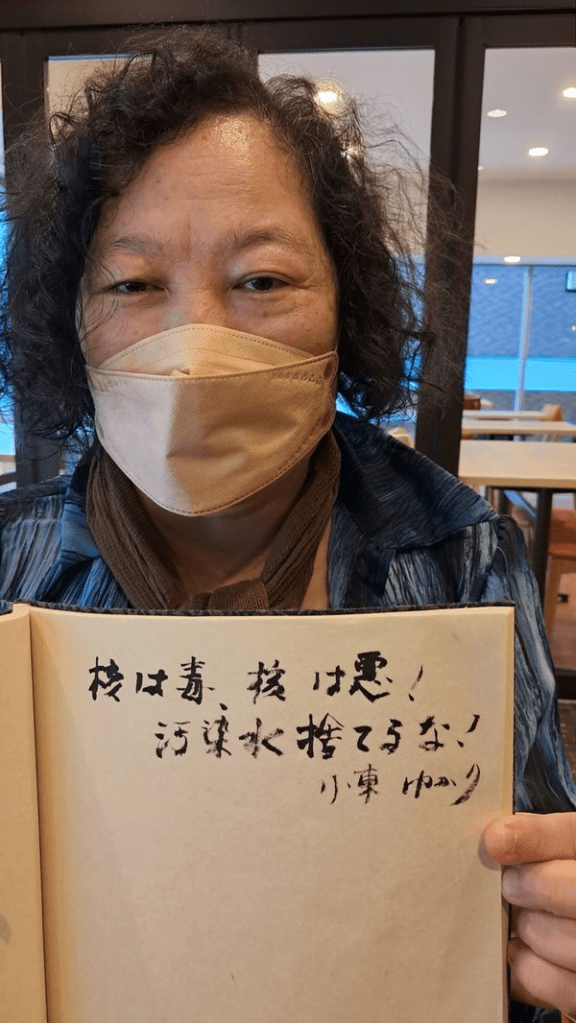 核は毒、核は悪!
汚染水捨てるな!
小東 ゆかり